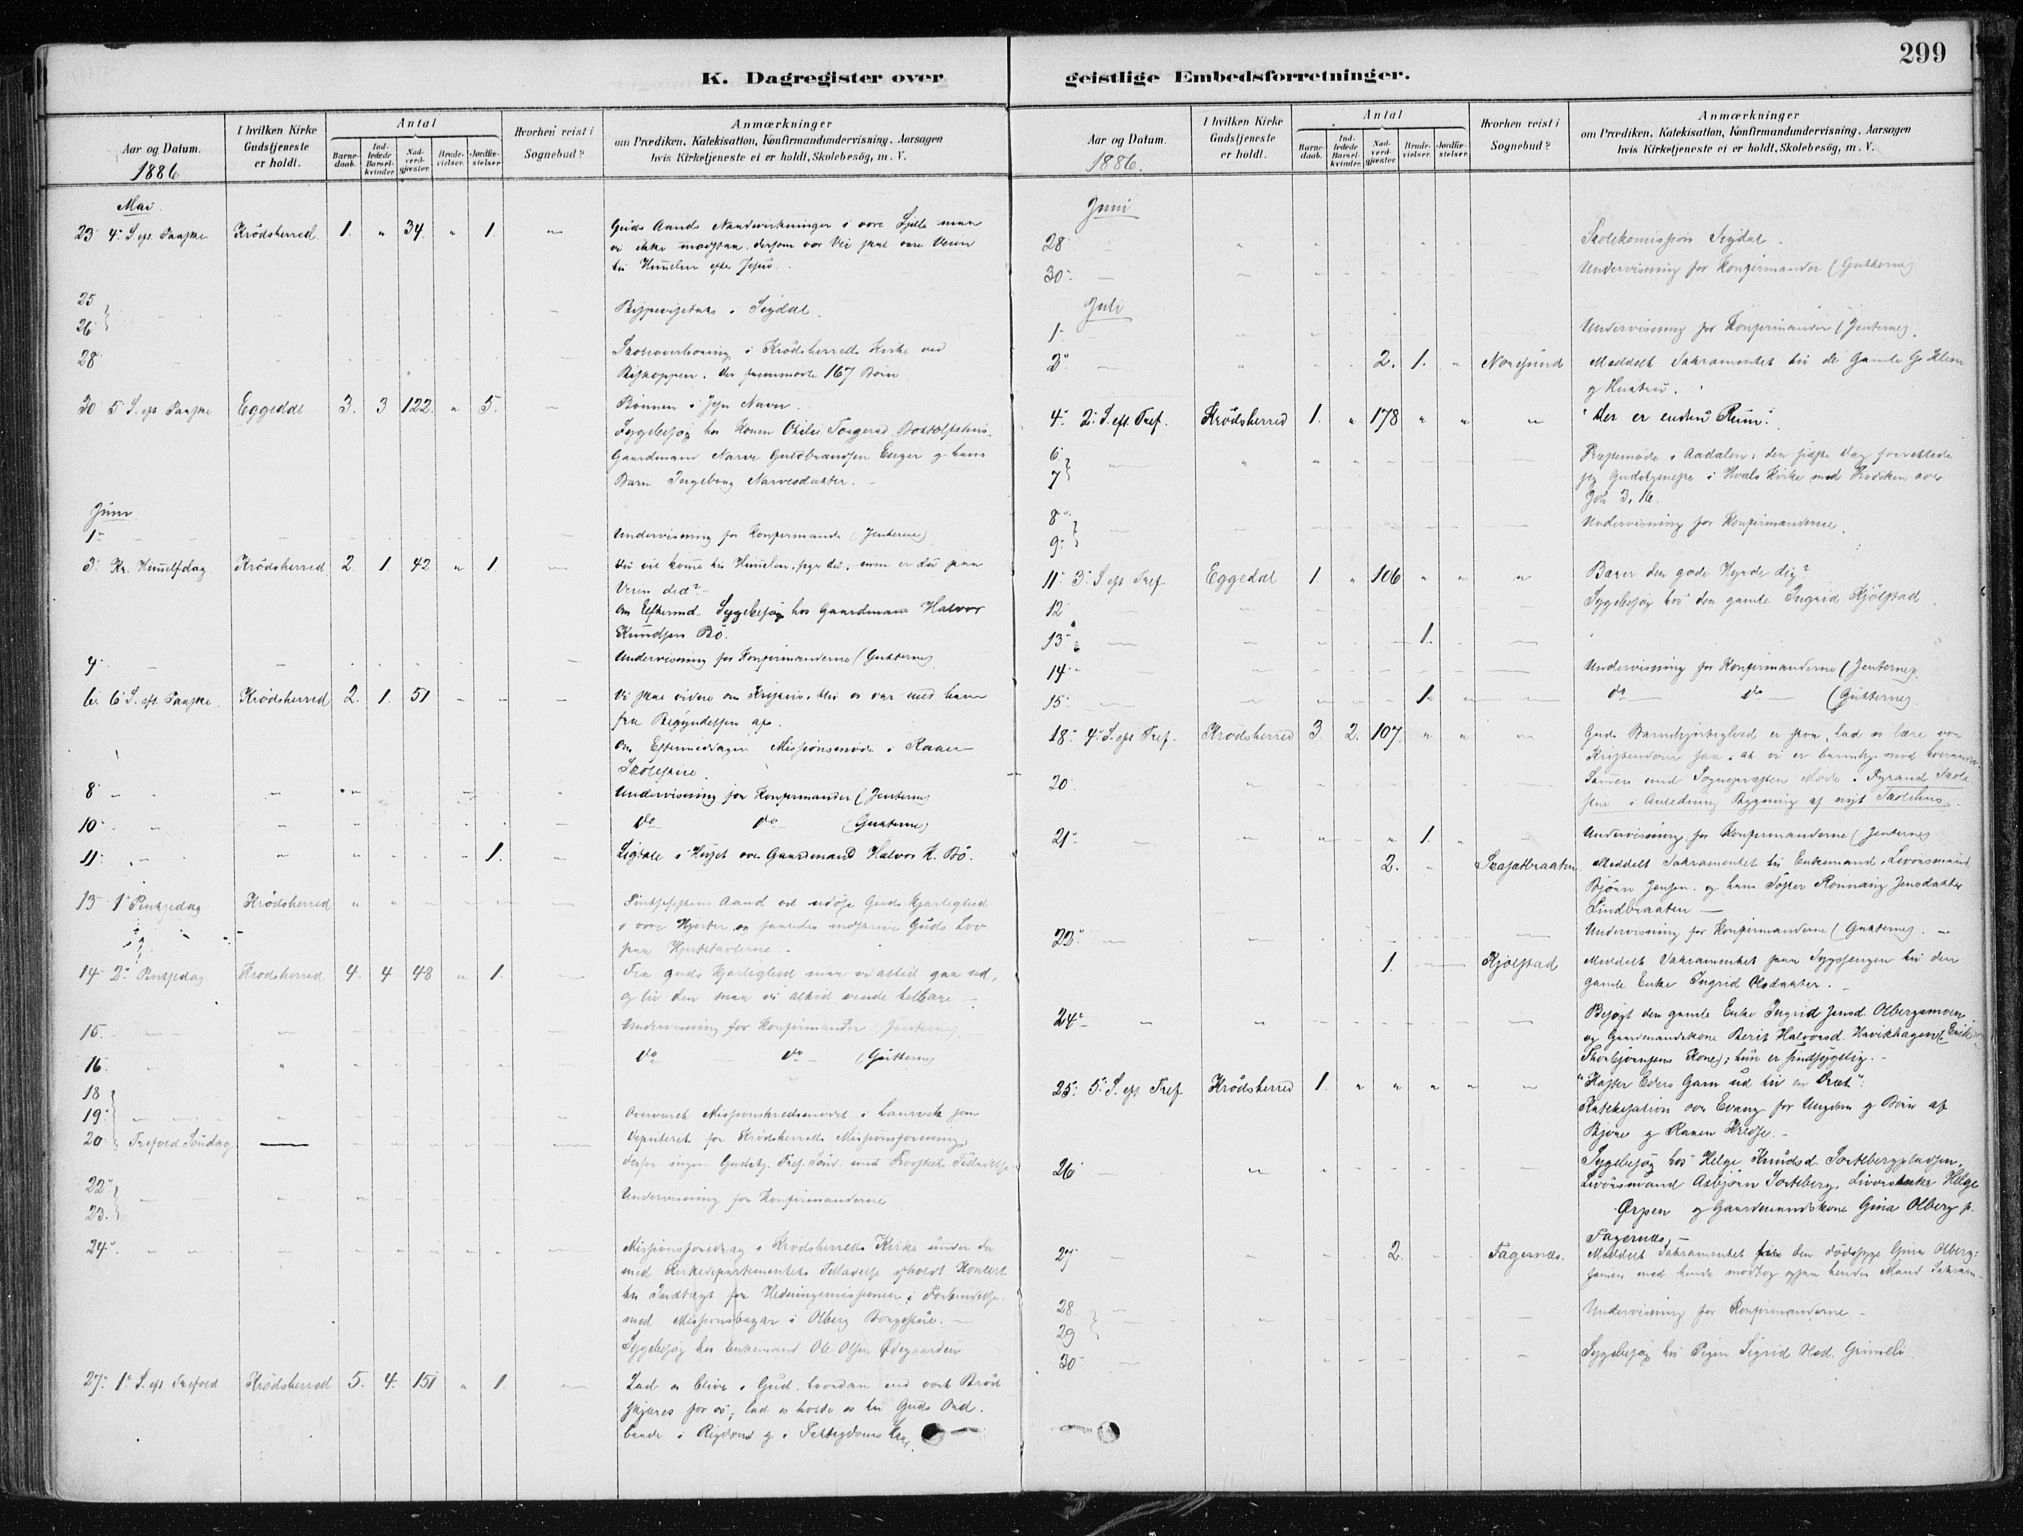 299
K. Dagregister over
Aar og Datum.
1886
I hvilken Kirke Gudstjeneste er holdt.
Antal
Barnedaab.
Indledede Barselkvinder.
Nadverdgjæster.
Brudevielser.
Jordfæstelser.
Hvorhen reist i Sognebud?
Anmærkninger
om Prædiken, Katekisation, Konfirmandundervisning, Aarsagen
hvis Kirketjeneste ei er holdt, Skolebesög, m. V.
Mai.
23 4. S. eft. Paaske Krödsherred 1. " 34. " 1. Guds Aands i vore
vi ikke modstaa, dersom vor Vei skal være Veien
til Himmelen efter Jesus.
25
26 Bispevisitats i Sigdal.
28 Skoleoverhöring i Krödsherreds Kirke ved
Biskoppen, der fremmödte 167 Börn
30 5 S. eft Paaske Eggedal 3. 3 122. " 5. Bönnen i Jesu Navn.
Sygebesög hos Konen
Gaardmand Narve Guldbrandsen Enger og hans
Barn Ingeborg Narvesdatter.
Juni
1. Undervisning for Konfirmander (Jenterne)
3. Kr. Himmelfdag Krödsherred 2. 1. 42 " 1. Du vil komme til Himmelen, siger du; men er du paa
Veien did?
om Efterm. Sygebesög hos Gaardmand Halvor
Knudsen Bö.
4. Undervisning for Konfirmanderne (Gutterne)
6. 6 S. eft. Paaske Krödsherred 2. 1. 51 Vi skal vidne om Kristus,
fra Begyndelsen af.
om Eftermiddagen Missionsmöde i
8 Undervisning for Konfirmander (Jenterne)
10 do do (Gutterne)
11. 1. Ligtale i Huset over Gaardmand Halvor K. Bö.
13 1 Pintsedag Krödsherred " " Aand vil udöse Guds Kjærlighed
i vore Hjerter og saaledes indskrive Guds Lov
paa Hjertetavlerne.
14 2. Pintsedag Krödsherred 4. 4 48 " 1. Fra Guds Kjærlighed maa vi altid gaa ud,
og til den maa vi altid vende tilbage
15. Undervisning for Konfirmander (Jenterne)
16. do do (Gutterne)
18
19. Overværet Missionskredsmödet i Laurvik som
20 Trefold. Söndag Deputeret for Krödsherreds Missionsforening;
derfor ingen Gudstj. Tref. Sönd. med Provstens Tilladelse.
22
23. Undervisning for Konfirmanderne
24. Missionsforedrag i Krödsherreds Kirke under
med Kirkedepartementets Tilladelse afholdt Koncert
til Indtægt for Hedningemissionen i Forbindelse
med Missionsbazar i Olberg
Sygebesög hos Enkemand Ole Olsen Ødegaarden
27. 1. S. eft Trefold Krödsherred 5. 4. 151 " 1. Lad os blive i Gud, hvordan end vort Bröd
skjæres for os; lad os holde os til Guds Ord.
baade i Rigdoms og i Fattigdoms
geistlige Embedsforretninger.
Aar og Datum.
1886.
I hvilken Kirke Gudstjeneste er holdt.
Antal
Barnedaab.
Indledede Barselkvinder.
Nadverdgjæster.
Brudevielser.
Jordfæstelser.
Hvorhen reist i Sognebud?
Anmærkninger
om Prædiken, Katekisation, Konfirmandundervisning, Aarsagen
hvis Kirketjeneste ei er holdt, Skolebesög, m. V.
Juni
28 Skolekomission Sigdal.
30 Undervisning for Konfirmander (Gutterne)
Juli
1. Undervisning for Konfirmander (Jenterne).
2. 2. 1. Noresund Meddelt Sakramentet til de gamle
og Hustru.
4. 2. S. eft. Tref. Krödsherred 1. " 178 " " " "der er endnu Rum".
6.
7 Præstemöde i Aadalen; den sidste Dag forrettede
jeg Gudstjeneste i Hvals Kirke med Prædiken over
Joh 3, 16.
8
9. Undervisning for Konfirmanderne
11. 3. S. eft Tref. Eggedal 1. " 106 " " " Bærer den gode Hyrde dig?
12 Sygebesög hos den gamle Ingrid Kjölstad
13 1.
14 Undervisning for Konfirmanderne (Jenterne).
15. 1. do do (Gutterne)
18 4. S. eft Tref. Krödsherred 3. 2. 107. " " " Guds Barmhjertighed er stor, lad os lære vor
Kristendom saa, at vi er barmhj. mod hverandre.
20. Sammen med Sognepræsten Möde i Fyrand
i Anledning Bygning af nyt Skolehus.
21 1. Undervisning for Konfirmanderne (Jenterne)
2. Meddelt Sakramentet til Enkemand, Livöresmand
Björn Jensen og hans Söster Rönnaug Jensdatter
Lindbraaten
22. Undervisning for Konfirmanderne (Gutterne).
1. Kjölstad Meddelt Sakramentet paa Sygesengen til den
gamle Enke Ingrid Olsdatter.
24 Besögt den gamle Enke Ingrid Jensd. Olbergsmoen
og Gaardmandskone Berit Halvorsd. (Erik
Thorbjörnsens Kone); hun er sindssygelig.
25. 5. S. eft Tref. Krödsherred 1. " " " " "Kaster Eders Garn ud til en Dræt".
Katekisation over Evang. for Ungdom og Börn af
Björe og Kreds.
26 Sygebesög hos Helge Knudsd. Sorteberg,
Livöresmand Asbjörn Sorteberg, Helge
Ørpen og Gaardmandskone Gina Olberg p.
Fagernæs.
27 2. Fagernæs. Meddelt Sakramentet den dödssyge Gina Olberg;
sammen med hende modtog ogsaa hendes Mand Sakram.
28.
29 Undervisning for Konfirmanderne
30 Sygebesög hos Pigen Sigrid